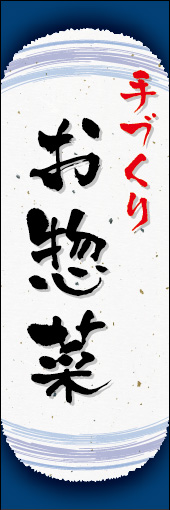 手づくり
お惣菜